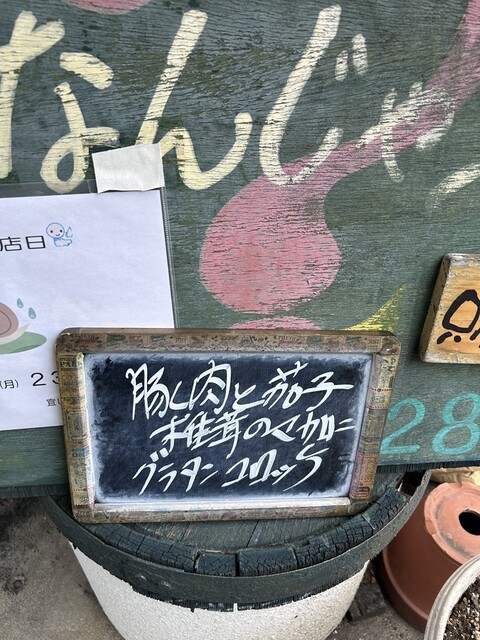 なんじゃ
店日
(月) 23
豚く肉と茄子
椎茸のマカロニ
グラタン コロッケ
28